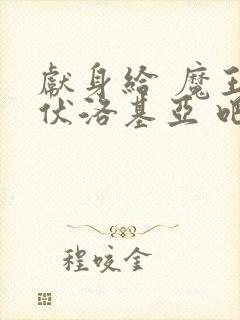 獻身給 魔王
伏洛基亞 吧
程咬金